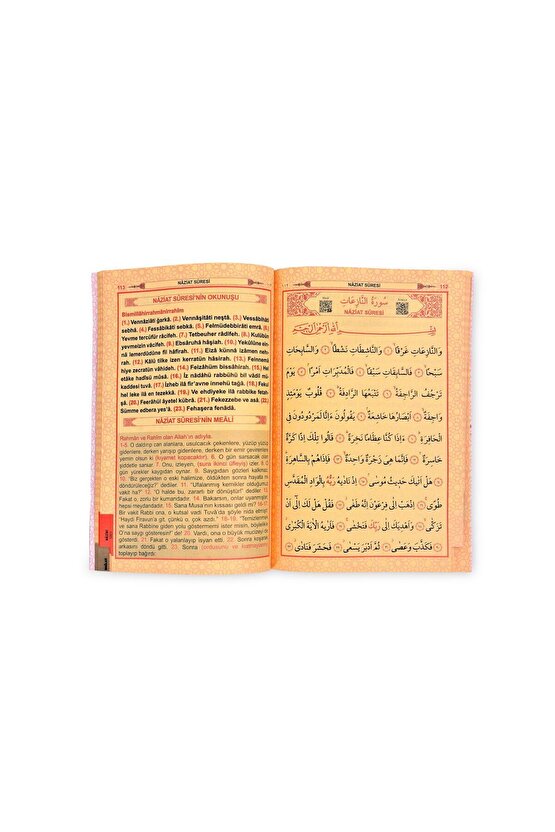 113
NÂZİAT SÛRESİ
NÂZİAT SÛRESİ'NİN OKUNUŞU
Bismillâhirrahmânirrahîm
(1.) Vennâziâti ğarkâ. (2.) Vennâşitâti neştâ. (3.) Vessâbihâti
sebhâ. (4.) Fessâbikâti sebkâ. (5.) Felmüdebbirâti emrâ. (6.)
Yevme tercüfür râcifeh. (7.) Tetbeuher râdifeh. (8.) Kulûbüy
yevmeizin vâcifeh. (9.) Ebsâruhâ hâşiah. (10.) Yekûlûne ein-
nâ lemerdûdûne fil hâfirah. (11.) Eizâ künnâ izâmen neh-
rah. (12.) Kâlû tilke izen kerratün hâsirah. (13.) Feinnemâ
hiye zecratün vâhideh. (14.) Feizâhüm bissâhirah. (15.) Hel
etâke hadîsü mûsâ. (16.) İz nâdâhü rabbühû bil vâdil mü-
kaddesi tuvâ. (17.) İzheb ilâ fir'avne innehû tağâ. (18.) Fekul
hel leke ilâ en tezekkâ. (19.) Ve ehdiyeke ilâ rabbike fetah-
şâ. (20.) Feerâhül âyetel kübrâ. (21.) Fekezzebe ve asâ. (22.)
Sümme edbera yes'â. (23.) Fehaşera fenâdâ.
NÂZİAT SÛRESİ'NİN MEÂLİ
Rahmân ve Rahîm olan Allah'ın adıyla.
1-5. O daldırıp can alanlara, usulcacık çekenlere, yüzüp yüzüp
gidenlere, derken yarışıp gidenlere, derken bir emir çevirenlere
yemin olsun ki (kıyamet kopacaktır). 6. O gün sarsacak olan
şiddetle sarsar. 7. Onu, izleyen, (sura ikinci üfleyiş) izler. 8. O
gün yürekler kaygıdan oynar. 9. Saygısızdan gözleri kalkmaz.
10. "Biz gerçekten o eski halimize, öldükten sonra hayata mı
döndürüleceğiz?" dediler. 11. "Ufalanmış kemikler olduğumuz
vakit ha?" 12. "O hâlde bu, zararlı bir dönüştür!" dediler. 13.
Fakat o, zorlu bir kumandadır. 14. Bakarsın, onlar uyanmışlar
hepsi meydandadır. 15. Sana Musa'nın kıssası geldi ya? 16-17.
Bir vakit Rabbi ona, o kutsal vadi Tuvâ'da şöyle nida etmişti:
"Haydi Firavun'a git, çünkü o, çok azdı." 18-19. "Temizlenmeye
ve sana Rabbine giden yolu göstermemi ister misin, böylelikle
O'na saygı gösteresin" de! 20. Vardı, ona o büyük mucizeyi
gösterdi. 21. Fakat o yalanlayıp isyan etti. 22. Sonra koşarak
arkasını döndü gitti. 23. Sonra (ordusunu ve kavmini)
toplayıp bağırdı.
NÂZİAT SÛRESİ
112
سُورَةُ النَّازِعَاتِ
NÂZİAT SÛRESİ
بِسْمِ اللّٰهِ الرَّحْمٰنِ الرَّحِيمِ
وَالنَّازِعَاتِ غَرْقًا ﴿١﴾ وَالنَّاشِطَاتِ نَشْطًا ﴿٢﴾ وَالسَّابِحَاتِ
سَبْحًا ﴿٣﴾ فَالسَّابِقَاتِ سَبْقًا ﴿٤﴾ فَالْمُدَبِّرَاتِ اَمْرًا ﴿٥﴾ يَوْمَ
تَرْجُفُ الرَّاجِفَةُ ﴿٦﴾ تَتْبَعُهَا الرَّادِفَةُ ﴿٧﴾ قُلُوبٌ يَوْمَئِذٍ
وَاجِفَةٌ ﴿٨﴾ اَبْصَارُهَا خَاشِعَةٌ ﴿٩﴾ يَقُولُونَ ءَاِنَّا لَمَرْدُودُونَ فِي
الْحَافِرَةِ ﴿١٠﴾ ءَاِذَا كُنَّا عِظَامًا نَخِرَةً ﴿١١﴾ قَالُوا تِلْكَ اِذًا كَرَّةٌ
خَاسِرَةٌ ﴿١٢﴾ فَاِنَّمَا هِيَ زَجْرَةٌ وَاحِدَةٌ ﴿١٣﴾ فَاِذَا هُمْ بِالسَّاهِرَةِ
﴿١٤﴾ هَلْ اَتٰيكَ حَدِيثُ مُوسٰى ﴿١٥﴾ اِذْ نَادٰيهُ رَبُّهُ بِالْوَادِ الْمُقَدَّسِ
طُوًى ﴿١٦﴾ اِذْهَبْ اِلٰى فِرْعَوْنَ اِنَّهُ طَغٰى ﴿١٧﴾ فَقُلْ هَلْ لَكَ اِلٰٓى اَنْ
تَزَكّٰى ﴿١٨﴾ وَاَهْدِيَكَ اِلٰى رَبِّكَ فَتَخْشٰى ﴿١٩﴾ فَاَرٰيهُ الْاٰيَةَ الْكُبْرٰى
﴿٢٠﴾ فَكَذَّبَ وَعَصٰى ﴿٢١﴾ ثُمَّ اَدْبَرَ يَسْعٰى ﴿٢٢﴾ فَحَشَرَ فَنَادٰى ﴿٢٣﴾